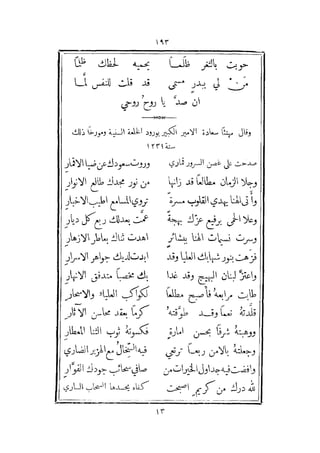 ١٩٣
حويت بالثغر ظلمًا يحميه لحظك ظلما
من لي ببدرٍ مسمى قد قلت للنفس لما
ان صدَّ يا روح روحي
وقال مهنئًا سعادة الامير الكبير بورود الخلعة السنية ومورخًا ذلك
سنة ١٢٣١
صدحت على غصن السرور قماري وروت سعودك عن ضيا الاقمار
وجلا الزمان مطالعًا قد زانها من نور مجدك طالع الانوار
وأتى الهنا يهدي القلوب مسرةً تروي المسامع اطيب الاخبار
وعلا الحمى برفيع عزك بهجةً عمَّت بعدلك ربع كل ديار
وسرت نسمات الهنا ببشائرٍ اهدت ثناك بعاطر الازهار
فزهت بنور شهابك العليا وقد ابدت لديك جواهر الاسرار
واعتزَّ لبنان البهيج وقد غدا بك مخصبًا متدفق الانهار
طابت مرابعهُ فاصبح مطلعًا لكواكب العلياء والاسحار
قلَّدتهُ نعمًا وقد طوقتهُ كرمًا بعقد محاسن الآثار
ووهبتهُ شرفًا بحسن امارةٍ فكسوتهُ ثوب الثنا المعطار
وجعلتهُ بالامن ربعًا ترتعي فيه السخال مع الهزبر الضاري
وافضت فيه جداول الخيرات من صافي سحائب جودك الفوَّار
لله درك من كريمٍ اصبحت كفاه يحسدها السحاب الساري
١٣